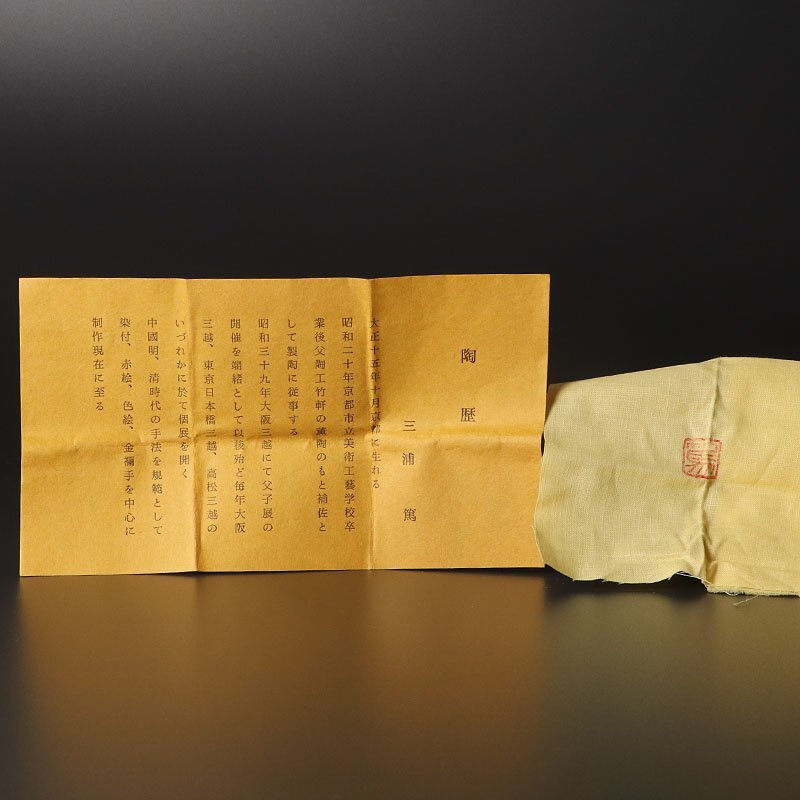 陶歴
三浦 篤
大正十五年十月京都に生れる
昭和二十年京都市立美術工藝学校卒
業後父陶工竹軒の薫陶のもと補佐と
して製陶に従事する
昭和三十九年大阪三越にて父子展の
開催を端緒として以後殆ど毎年大阪
三越、東京日本橋三越、高松三越の
いづれかに於て個展を開く
中國明、清時代の手法を規範として
染付、赤絵、色絵、金襴手を中心に
制作現在に至る